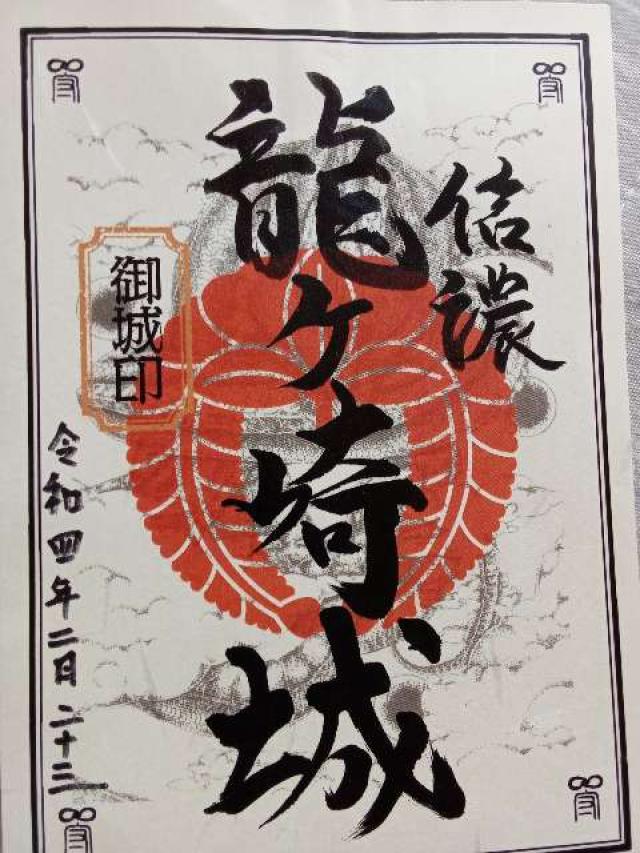 信濃
龍ヶ崎城
御城印
令和四年二月二十三